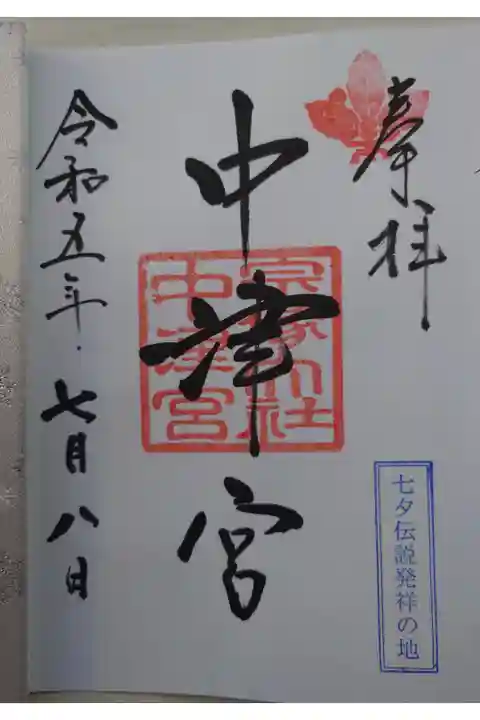 奉拝
七夕伝説発祥の地
中津宮
宗像大社
中津宮
令和五年七月八日